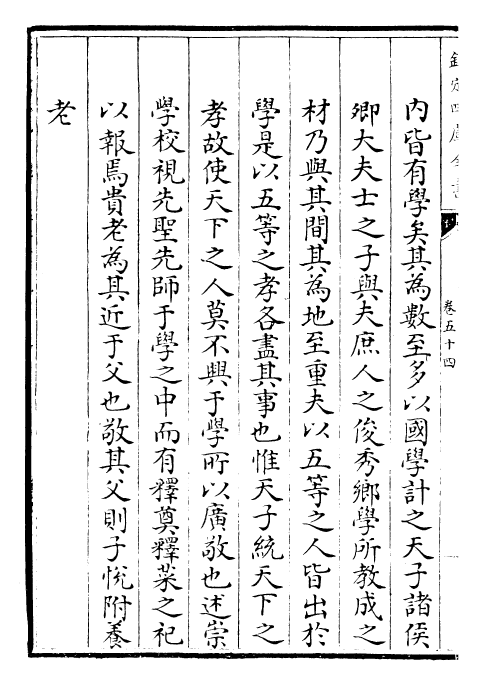 欽定四庫全書
卷五十四
内皆有學矣其為數至多以國學計之天子諸侯
卿大夫士之子與夫庶人之俊秀鄉學所教成之
材乃與其間其為地至重夫以五等之人皆出於
學是以五等之孝各盡其事也惟天子統天下之
孝故使天下之人莫不興于學所以廣敬也述崇
學校視先聖先師于學之中而有釋奠釋菜之祀
以報焉貴老為其近于父也敬其父則子悅附養
老